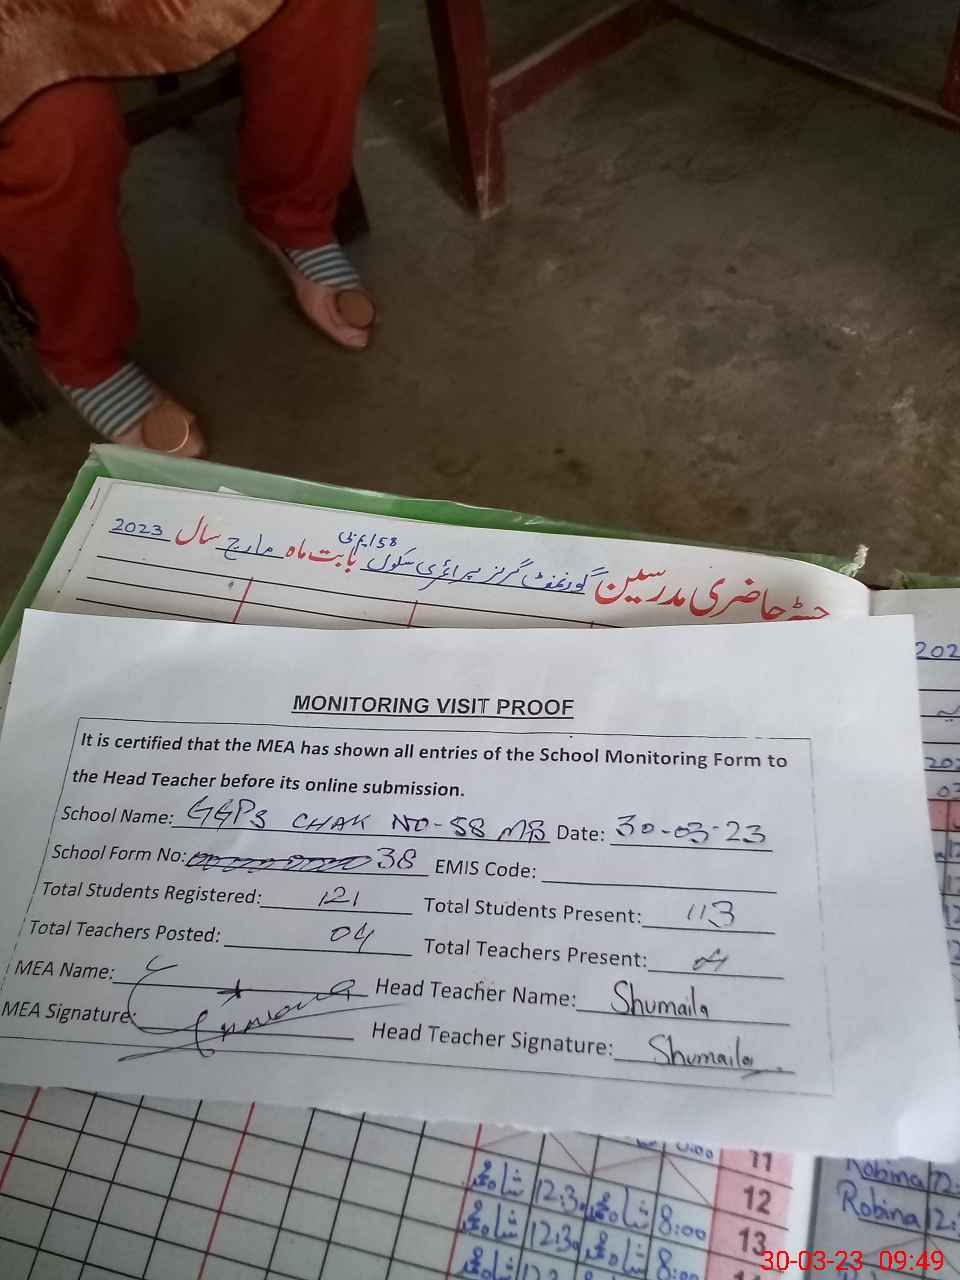 رجسٹر حاضری مدرسین گورنمنٹ گرلز پرائمری سکول 58 ایم بی بابت ماہ مارچ سال 2023
MONITORING VISIT PROOF
It is certified that the MEA has shown all entries of the School Monitoring Form to
the Head Teacher before its online submission.
School Name: GGPS CHAK NO-58 MB Date: 30-03-23
School Form No: 38 EMIS Code:
Total Students Registered: 121 Total Students Present: 113
Total Teachers Posted: 04 Total Teachers Present: 04
MEA Name: Head Teacher Name: Shumaila
MEA Signature: Head Teacher Signature: Shumaila
11
12:30 8:00 12 Robina
12:30 8:00 13 Robina
30-03-23 09:49